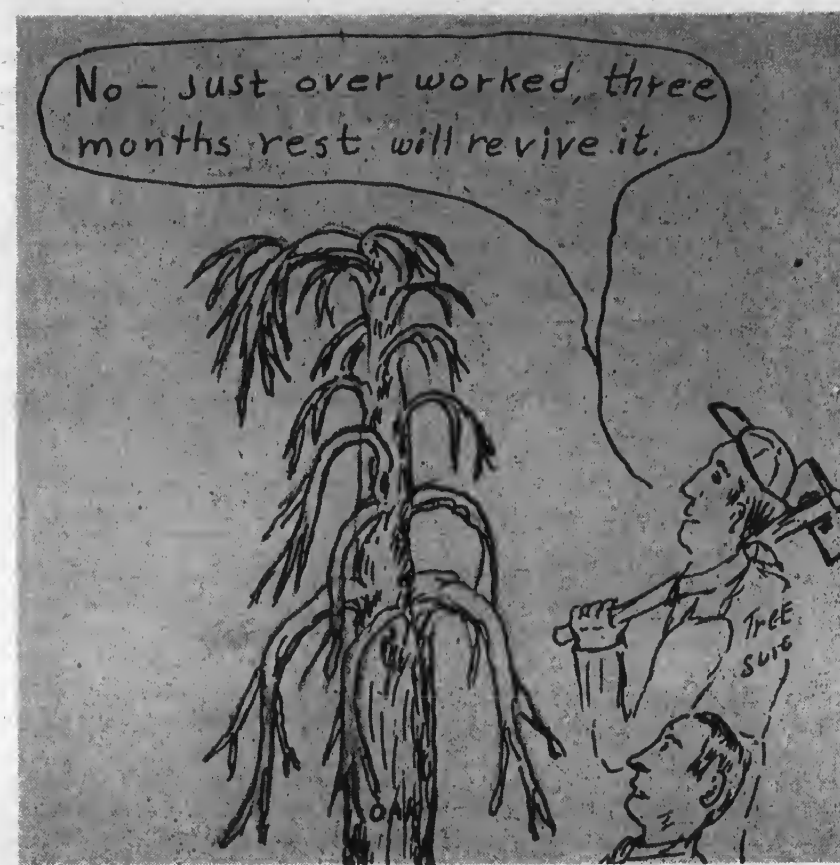 No - just over worked, three
months rest will revive it.
TREE
OAK